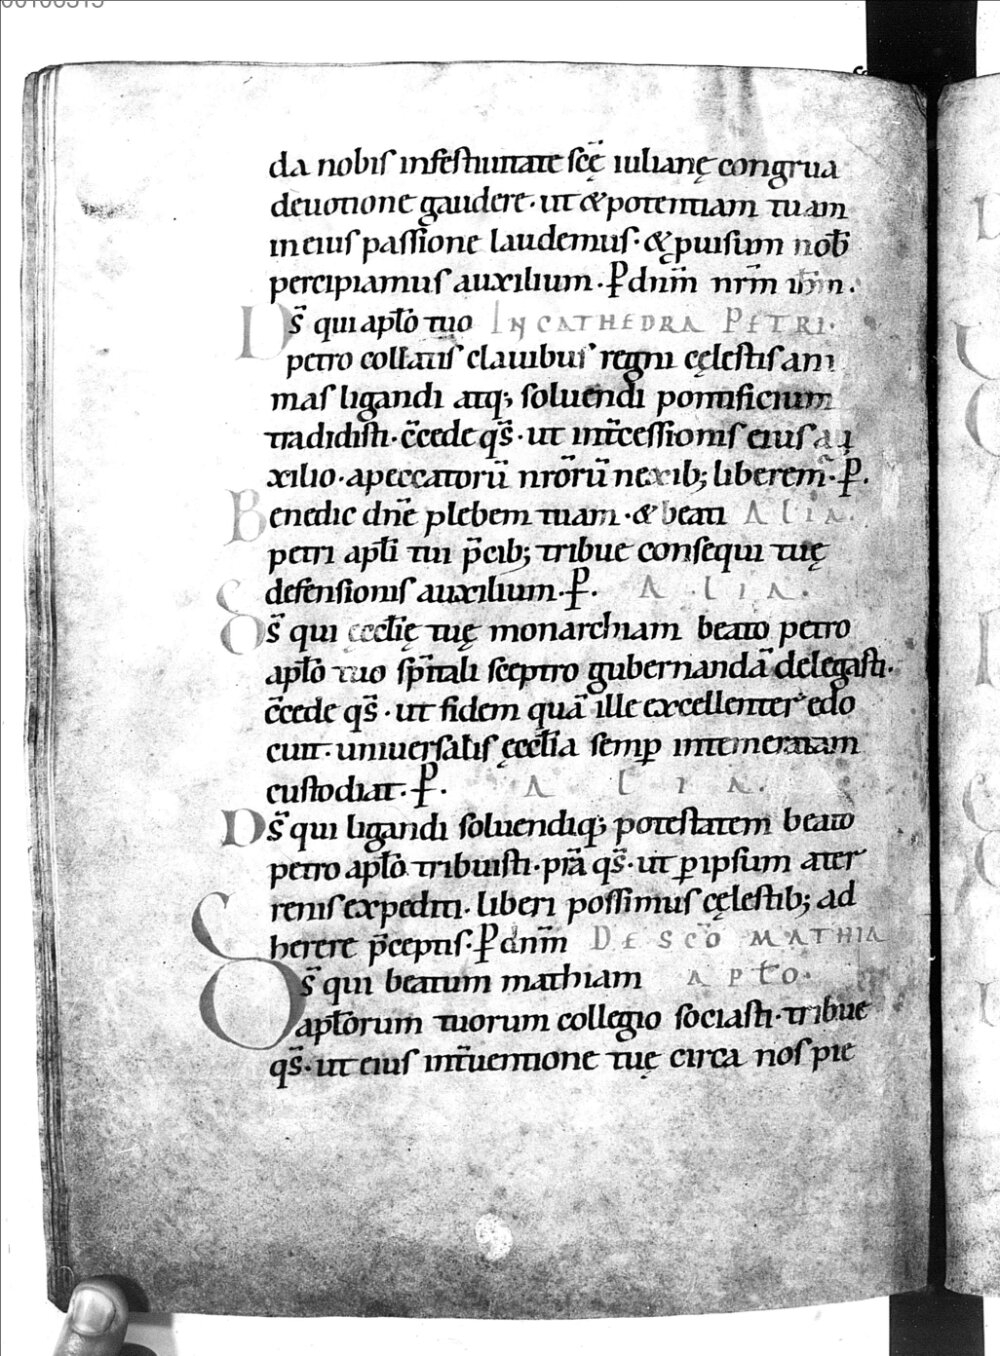 da nobis infestiuitate scę̄ iulianę congrua
deuotione gaudere· ut & potentiam tuam
in eius passione laudemus· & puisum nob̄
percipiamus auxilium· P̲ dnm̄ nrm̄ ih̄m
Ds̄ qui aptō tuo IN CATHEDRA PETRI·
petro collatis clauibus regni cęlestis ani
mas ligandi atq; soluendi pontificium
tradidisti· c̄cede qs̄· ut int̄cessionis eius au
xilio· a peccatorū nrōrū nexib; liberem̄· P̲.
Benedic dnē plebem tuam· & beati ALIA.
petri aptī tui p̄cib; tribue consequi tuę
defensionis auxilium· P̲. A L I A.
Ds̄ qui ęcclīę tuę monarchiam beato petro
aptō tuo sp̄itali sceptro gubernandā delegasti·
c̄cede qs̄· ut fidem quā ille excellenter edo
cuit· uniuersalis ęcclīa semp̲ intemeratam
custodiat· P̲. A L I A.
Ds̄ qui ligandi soluendiq; potestatem beato
petro aptō tribuisti· p̄ta qs̄· ut p̲ ipsum a ter
renis expediti· liberi possimus cęlestib; ad
herere p̄ceptis· P̲ dnm̄ DE SCŌ MATHIA
Ds̄ qui beatum mathiam APTO·
aptōrum tuorum collegio sociasti· tribue
qs̄· ut eius int̄uentione tuę circa nos pie